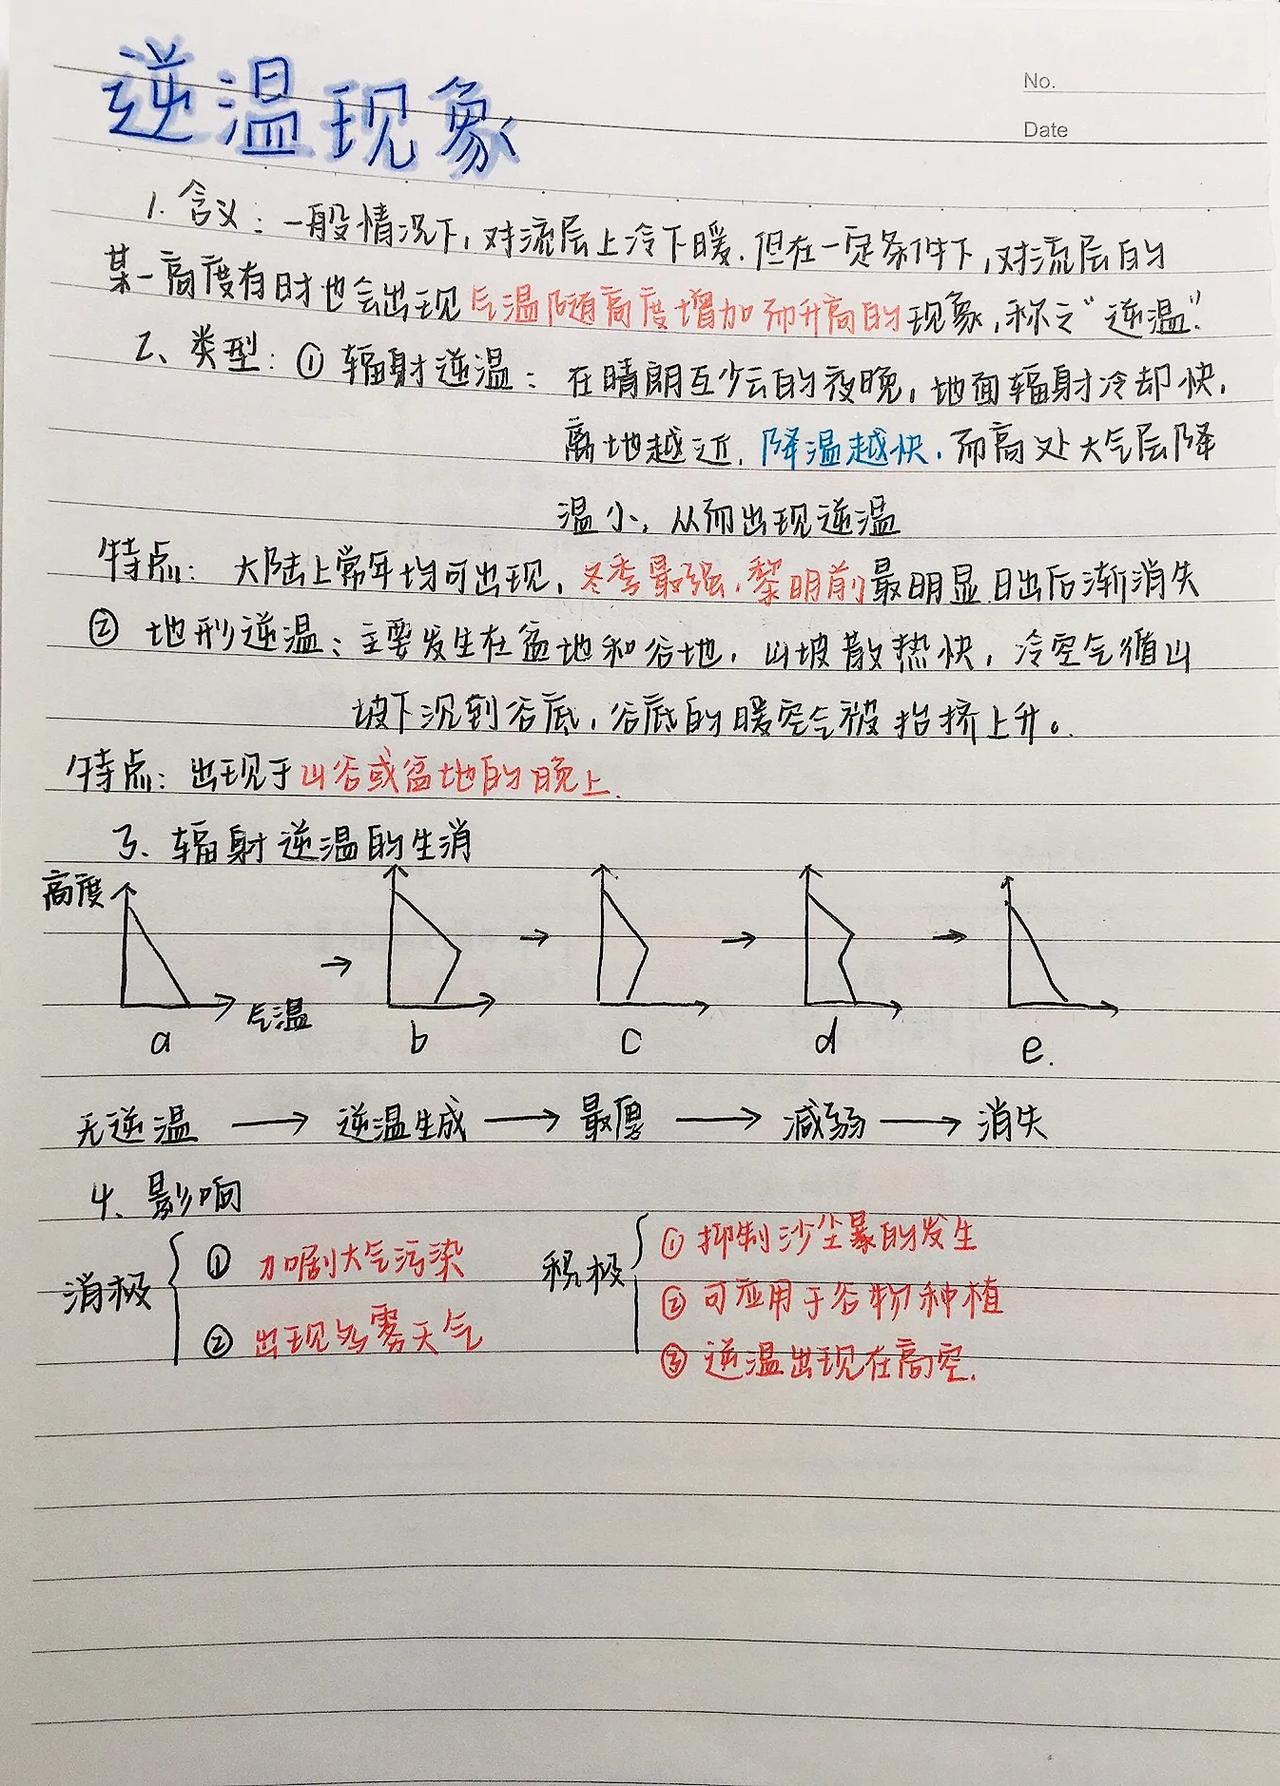 No.
Date
逆温现象
1. 含义：一般情况下，对流层上冷下暖.但在一定条件下，对流层的
某一高度有时也会出现气温随高度增加而升高的现象，称之“逆温”.
2、类型：① 辐射逆温：在晴朗互少云的夜晚，地面辐射冷却快，
离地越近，降温越快.而高处大气层降
温小，从而出现逆温
特点：大陆上常年均可出现，冬季最强，黎明前最明显.日出后渐消失
② 地形逆温：主要发生在盆地和谷地，山坡散热快，冷空气循山
坡下沉到谷底，谷底的暖空气被抬挤上升。
特点：出现于山谷或盆地的晚上.
3、辐射逆温的生消
高度
气温
a b c d e.
无逆温 → 逆温生成 → 最厚 → 减弱 → 消失
4、影响
消极 ① 加剧大气污染
② 出现多雾天气
积极 ① 抑制沙尘暴的发生
② 可应用于谷物种植
③ 逆温出现在高空.